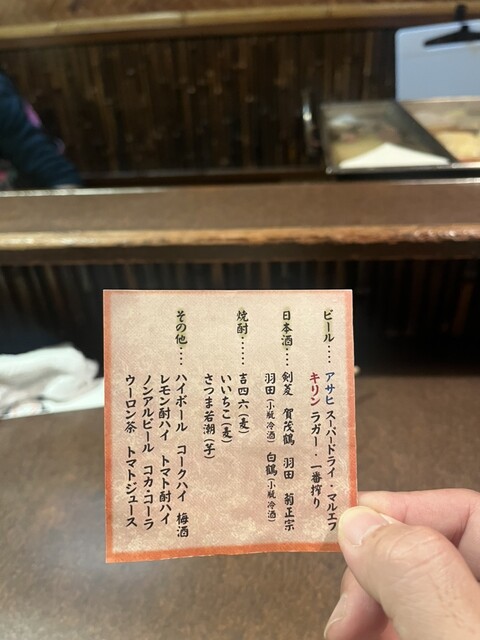 ビール‥‥アサヒ スーパードライ・マルエフ
キリン ラガー・一番搾り
日本酒‥‥剣菱 賀茂鶴 羽田 菊正宗
羽田(小瓶 冷酒) 白鶴(小瓶 冷酒)
焼酎‥‥‥吉四六(麦)
いいちこ(麦)
さつま若潮(芋)
その他‥‥ハイボール コークハイ 梅酒
レモン酎ハイ トマト酎ハイ
ノンアルビール コカ・コーラ
ウーロン茶 トマトジュース